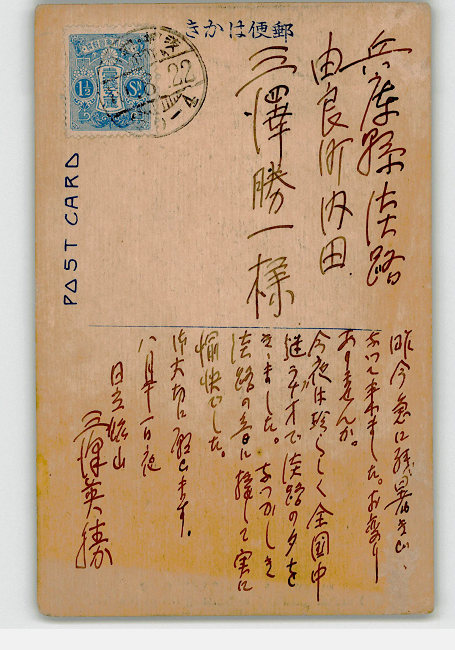 郵便はかき
1½ Sn
22
POST CARD
兵庫縣淡路
由良町内田
三澤勝一様
昨今急に残暑き
なって来ました。お変り
ありませんか。
今夜は珍らしく全国中
継ラヂオで淡路の夕を
きゝました。なつかしき
淡路の音に接して実に
愉快でした。
御大切に願ひます。
八月廿一日夜
日立
三澤英勝